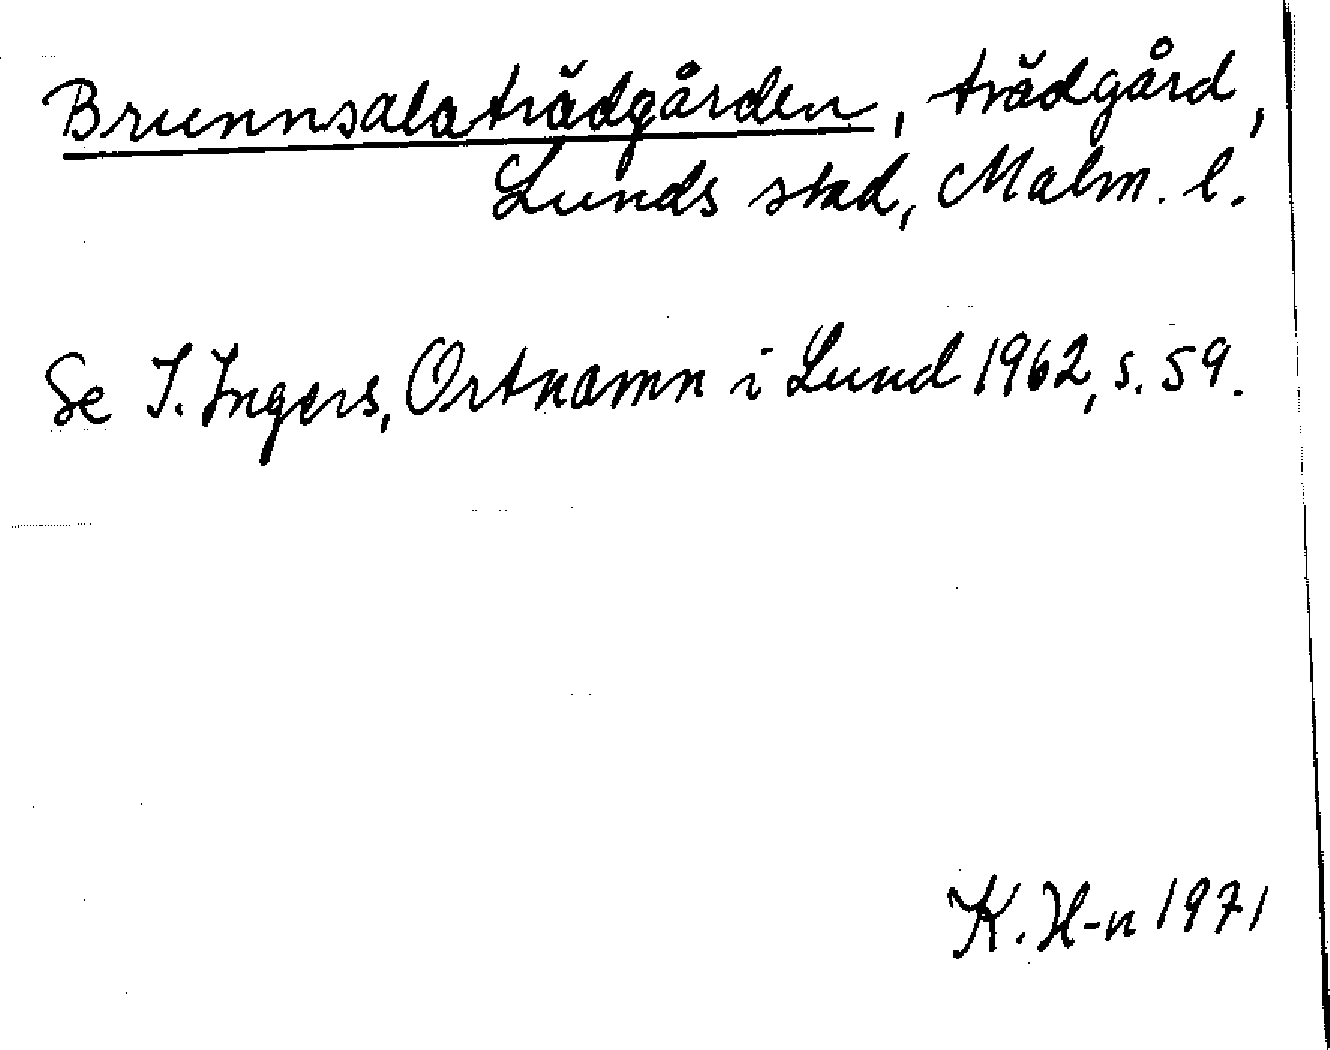 Brunnsalaträdgården, trädgård,
Lunds stad, Malm. l.
Se I. Ingers, Ortnamn i Lund 1962, s. 59.
K. H-n 1971